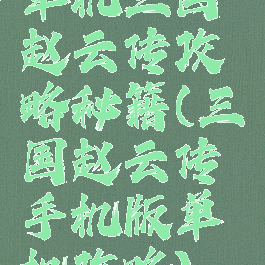 单机三国
赵云传攻
略秘籍(三
国赵云传
手机版单
机攻略)